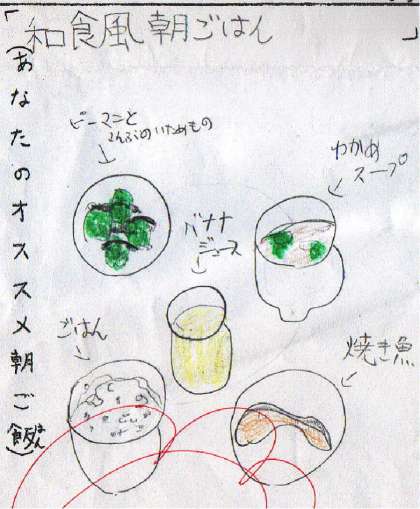 「和食風朝ごはん」
(あなたのオススメ朝ご飯)
はん
ピーマンと
こんぶのいためもの
わかめ
スープ
バナナ
ジュース
ごはん
焼き魚